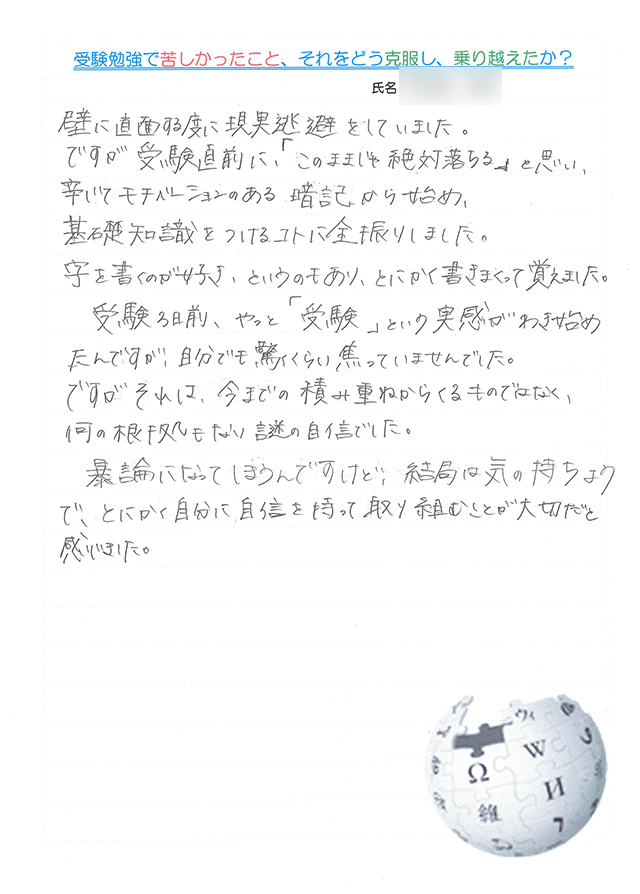 受験勉強で苦しかったこと、それをどう克服し、乗り越えたか？
氏名
壁に直面する度に現実逃避をしていました。
ですが受験直前に、「このままじゃ絶対落ちる」と思い、
辛じてモチベーションのある暗記から始め、
基礎知識をつけるコトに全振りしました。
字を書くのが好き、というのもあり、とにかく書きまくって覚えました。
受験3日前、やっと「受験」という実感がわき始め
たんですが、自分でも驚くくらい焦っていませんでした。
ですがそれは、今までの積み重ねからくるものではなく、
何の根拠もない謎の自信でした。
暴論になってしまうんですけど、結局は気の持ちよう
で、とにかく自分に自信を持って取り組むことが大切だと
感じました。
ウィ
Ω
W
И
維